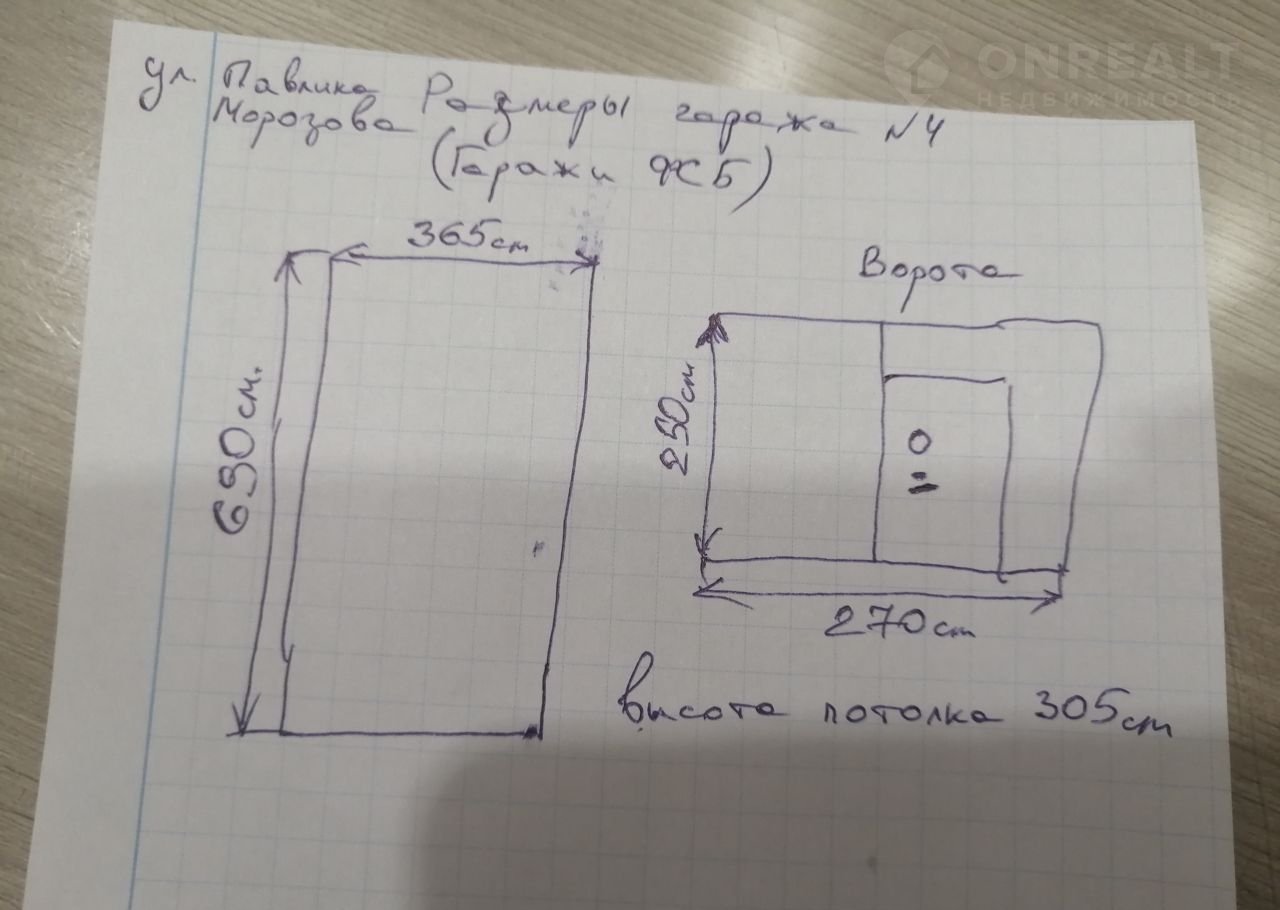 ONREALT
НЕДВИЖИМОСТЬ
ул. Павлика
Морозова
Размеры гаража №4
(Гаражи ФСБ)
365см
690см.
Ворота
250см
270см
высота потолка 305см